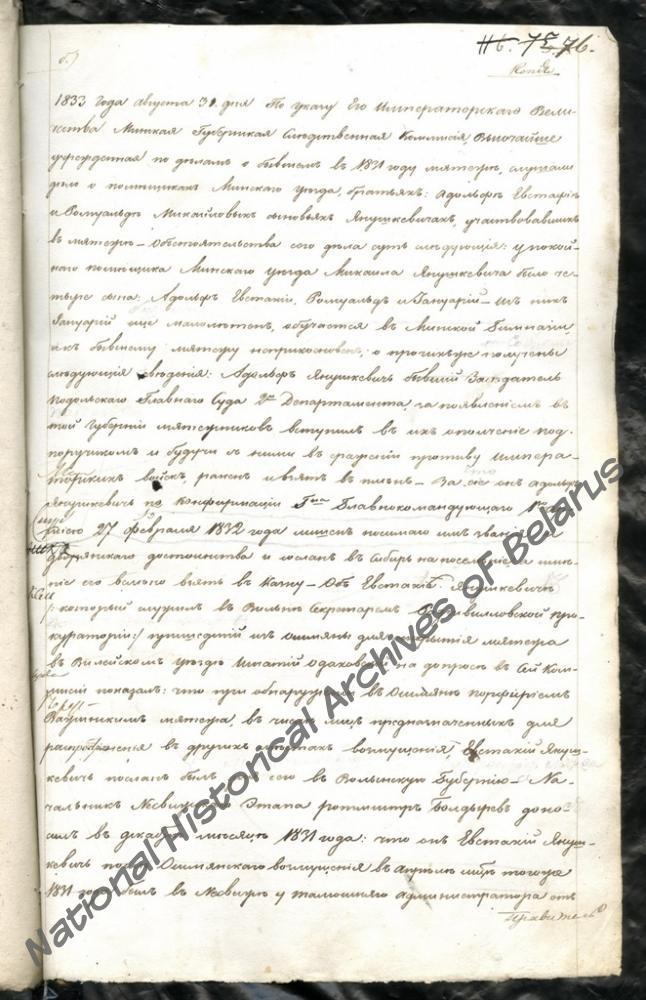 116. 75. 76.
Копія.
1833 года августа 31. дня По указу Его Императорскаго Вели-
чества Минская Губернская Следственная Коммисія, Высочайше
учрежденная по деламъ о бывшемъ въ 1831 году мятеже, слушали
дело о помещикахъ Минскаго уезда, братьяхъ: Адольфе Евстафіе
и Ромуальде Михайловыхъ сыновьяхъ Янушкевичахъ, участвовавшихъ
въ мятеже – Обстоятельства сего дела суть следующія: у покой-
наго помещика Минскаго уезда Михаила Янушкевича было че-
тыре сына: Адольфъ Евстахій, Ромуальдъ и Януарій – изъ нихъ
Януарій еще малолетенъ, обучается въ Минской Гимназіи,
и къ бывшему мятежу неприкосновенъ; о прочихъ же получены
следующія сведенія: Адольфъ Янушкевичъ бывшій Заседатель
Подольскаго Главнаго Суда 2го Департамента, за появленіемъ въ
той Губерніи мятежниковъ вступилъ въ ихъ ополченіе под-
поручикомъ и будучи съ ними въ сраженіи противу Импера-
торскихъ войскъ, раненъ и взятъ въ пленъ – За сіе онъ Адольфъ
Янушкевичъ по Конфирмаціи Гна Главнокомандующаго 1ю
27 февраля 1832 года лишенъ носимаго имъ званія
дворянскаго достоинства и сосланъ въ Сибирь на поселеніе а име-
ніе его велено взять въ Казну – Объ Евстахіе Янушкевиче
/: который служилъ въ Вильне Секретаремъ Радзивилловской про-
кураторіи :/ пришедшій изъ Ошмяны для открытія мятежа
въ Вилейскомъ уезде Игнатій Одаховскій на допросе въ сей Ком-
мисіи показалъ: что при обнаруженіи въ Ошмяне порфиріемъ
Важинскимъ мятежа, въ числе лицъ предназначенныхъ для
распространенія въ другихъ местахъ возмущенія, Евстахій Януш-
кевичъ посланъ былъ для сего въ Волынскую Губернію – На-
чальникъ Несвижскаго Этапа ротмистръ Болдыревъ доно-
силъ въ декабре месяце 1831 года: что онъ Евстахій Януш-
кевичъ после Ошмянскаго возмущенія въ апреле мце того же
1831 года былъ въ Несвиже у тамошняго администратора отъ
Правитель
National Historical Archives of Belarus